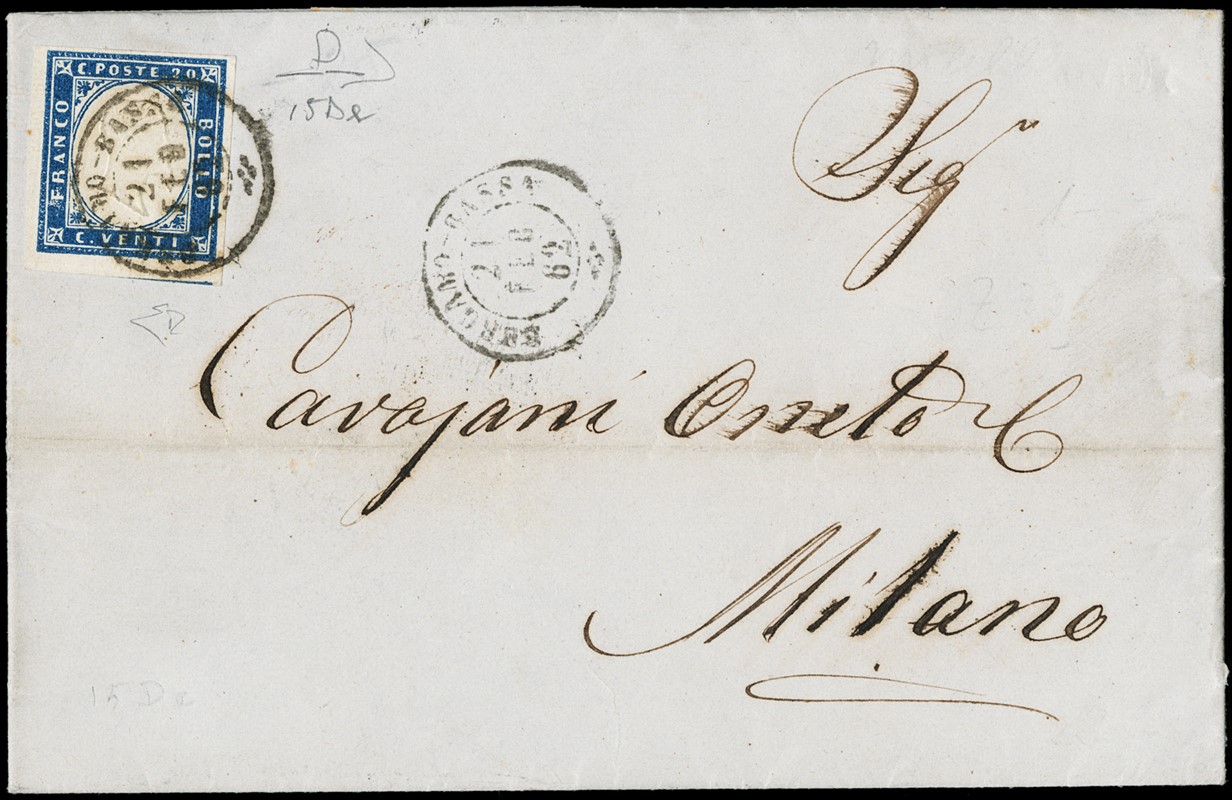 C. POSTE 20
FRANCO
BOLLO
C. VENTI
21
FEB
P
15De
BERGAMO-BASSA
21
FEB
62
Sig
Cavajani Oneto & C
Milano
15De